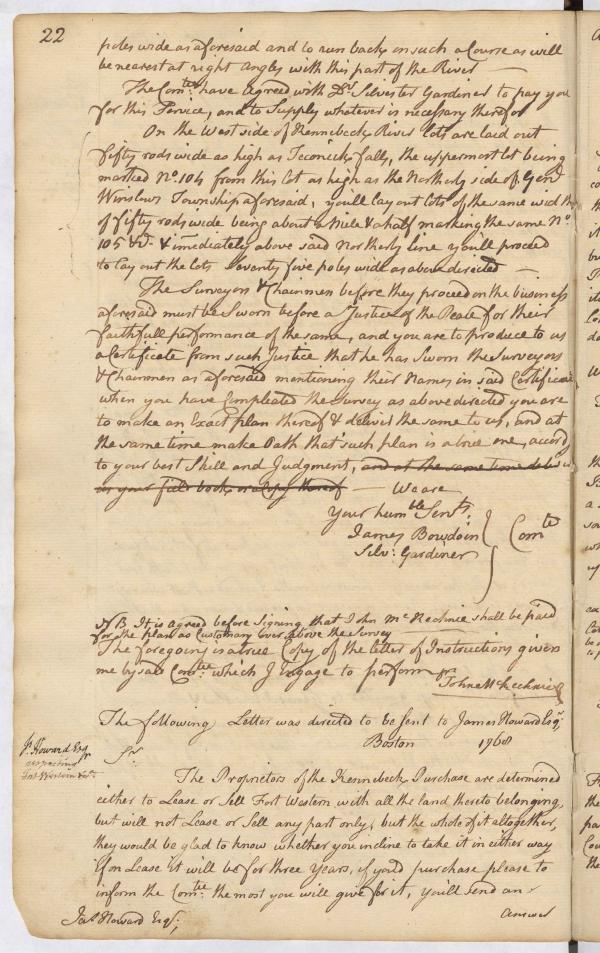 22
poles wide as aforesaid and to run back on such a Course as will
be nearest at right angles with this part of the River
The Comtee have agreed with Dr Silvester Gardiner to pay you
for this Service, and to Supply whatever is necessary therefor
On the West side of Kennebeck River lots are laid out
fifty rods wide as high as Teconick falls, the uppermost lot being
marked No. 104 from this lot as high as the Northerly side of Genl
Winslows Township aforesaid, you'll lay out lots of the same width
of fifty rods wide being about a Mile & a half marking the same No
105 &c. & imediately above said Northerly line you'll proceed
to lay out the lots Seventy five poles wide as above directed
The Surveyors & Chainmen before they proceed on the business
aforesaid must be Sworn before a Justice of the Peace for their
faithfull performance of the same, and you are to produce to us
a Certificate from such Justice that he has Sworn the Surveyors
& Chainmen as aforesaid mentioning their Names in said Certificate
when you have Compleated the Survey as above directed you are
to make an Exact plan thereof & deliver the same to us, and at
the same time make Oath that such plan is a true one, accordg
to your best Skill and Judgment, and at the same time deliver
us your field book, or a Copy thereof — We are
Your humble Servts.
James Bowdoin
Silvr. Gardiner
Comtee
NB It is agreed before Signing that John McKechnie shall be paid
for the plan as Customary over & above the Survey
The foregoing is a true Copy of the letter of Instructions given
me by said Comtee which I Engage to perform
John McKechnie
The following Letter was directed to be sent to James Howard Esqr
Boston 1768
Js. Howard Esqr
respecting
Fort Western &c.
Sr.
The Proprietors of the Kennebeck Purchase are determined
either to Lease or Sell Fort Western with all the land thereto belonging,
but will not Lease or Sell any part only, but the whole of it altogether,
they would be glad to know whether you incline to take it in either way
if on Lease it will be for three Years, if you'd purchase please to
inform the Comtee the most you will give for it, you'll send an
Answer
Jas Howard Esqr;